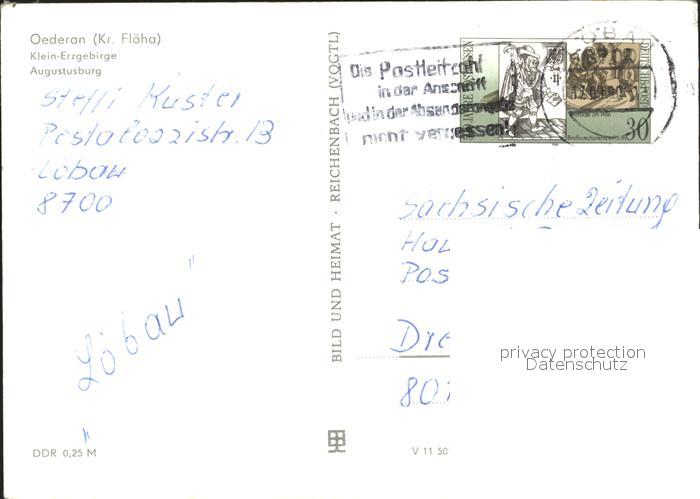 Oederan (Kr. Flöha)
Klein-Erzgebirge
Augustusburg
Steffi Kuster
Pestalozzistr. 13
Löbau
8700
"Löbau"
DDR 0,25 M
BILD UND HEIMAT · REICHENBACH (VOGTL)
V 11 50
Die Postleitzahl
in der Anschrift
und in der Absenderangabe
nicht vergessen!
30
Sächsische Zeitung
Hau
Pos
Dre
801
privacy protection
Datenschutz